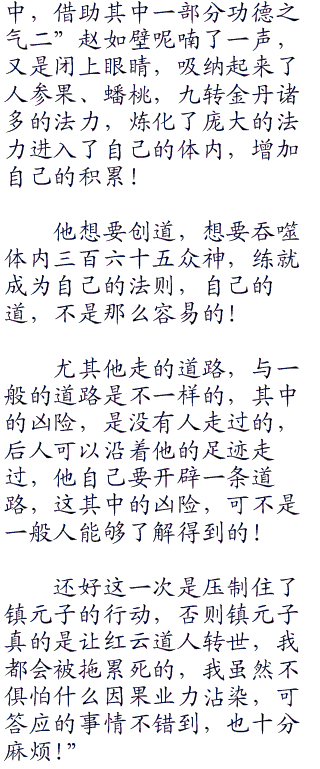 中，借助其中一部分功德之
气二”赵如壁呢喃了一声，
又是闭上眼睛，吸纳起来了
人参果、蟠桃，九转金丹诸
多的法力，炼化了庞大的法
力进入了自己的体内，增加
自己的积累！
他想要创道，想要吞噬
体内三百六十五众神，练就
成为自己的法则，自己的
道，不是那么容易的！
尤其他走的道路，与一
般的道路是不一样的，其中
的凶险，是没有人走过的，
后人可以沿着他的足迹走
过，他自己要开辟一条道
路，这其中的凶险，可不是
一般人能够了解得到的！
还好这一次是压制住了
镇元子的行动，否则镇元子
真的是让红云道人转世，我
都会被拖累死的，我虽然不
俱怕什么因果业力沾染，可
答应的事情不错到，也十分
麻烦！”